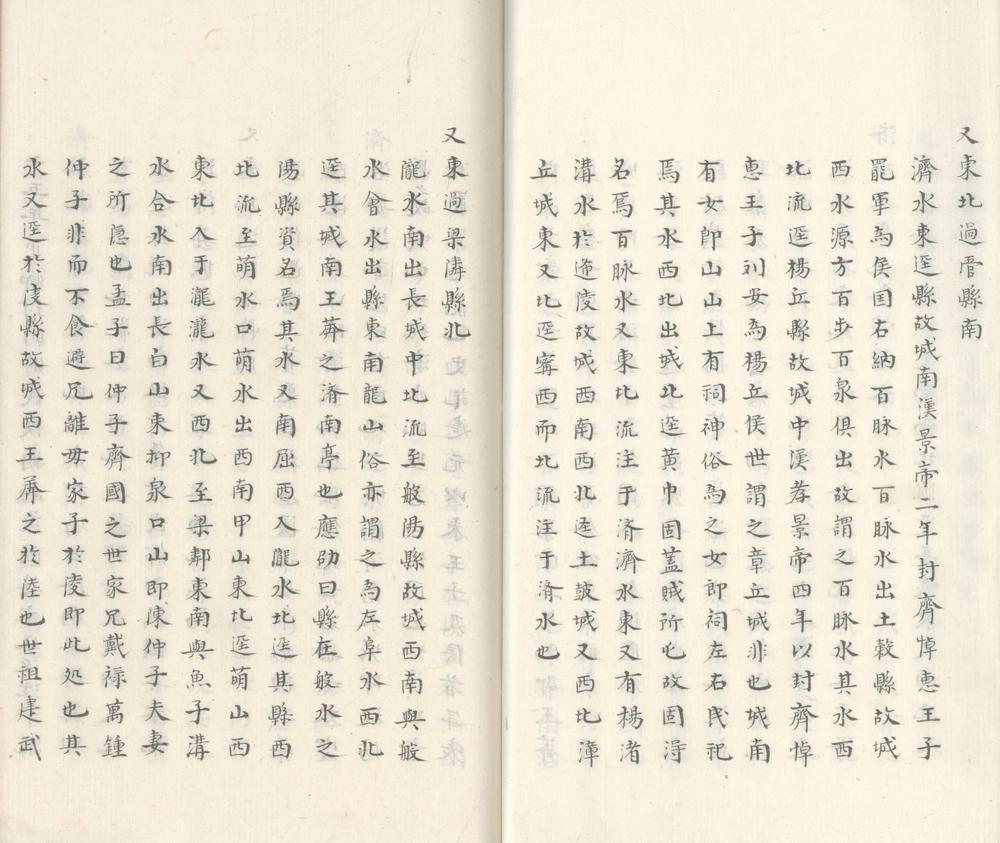 又東北過菅縣南
濟水東逕縣故城南漢景帝二年封齊悼惠王子
罷軍為侯国右納百脉水百脉水出土穀縣故城
西水源方百步百泉俱出故謂之百脉水其水西
北流逕楊丘縣故城中漢孝景帝四年以封齊悼
惠王子刘安為楊丘侯世謂之章丘城非也城南
有女郎山山上有祠神俗為之女郎祠左右民祀
焉其水西北出城北逕黄巾固蓋賊所屯故固淂
名焉百脉水又東北流注于済濟水東又有楊渚
溝水於逄陵故城西南西北逕土鼓城又西北漳
丘城東又北逕寗西而北流注于済水也
又東過梁溝縣北
瀧水南出長城中北流至般陽縣故城西南與般
水會水出縣東南龍山俗亦謂之為左阜水西北
逕其城南王莽之済南亭也應劭曰縣在般水之
陽縣資名焉其水又南屈西入瀧水北逕其縣西
北流至萌水口萌水出西南甲山東北逕萌山西
東北入于瀧瀧水又西北至梁鄒東南與魚子溝
水合水南出長白山東抑泉口山即陳仲子夫妻
之所隐也孟子曰仲子齊國之世家兄戴禄萬鍾
仲子非而不食避兄離毋家子於陵即此処也其
水又逕於陵縣故城西王莽之於陸也世祖建武